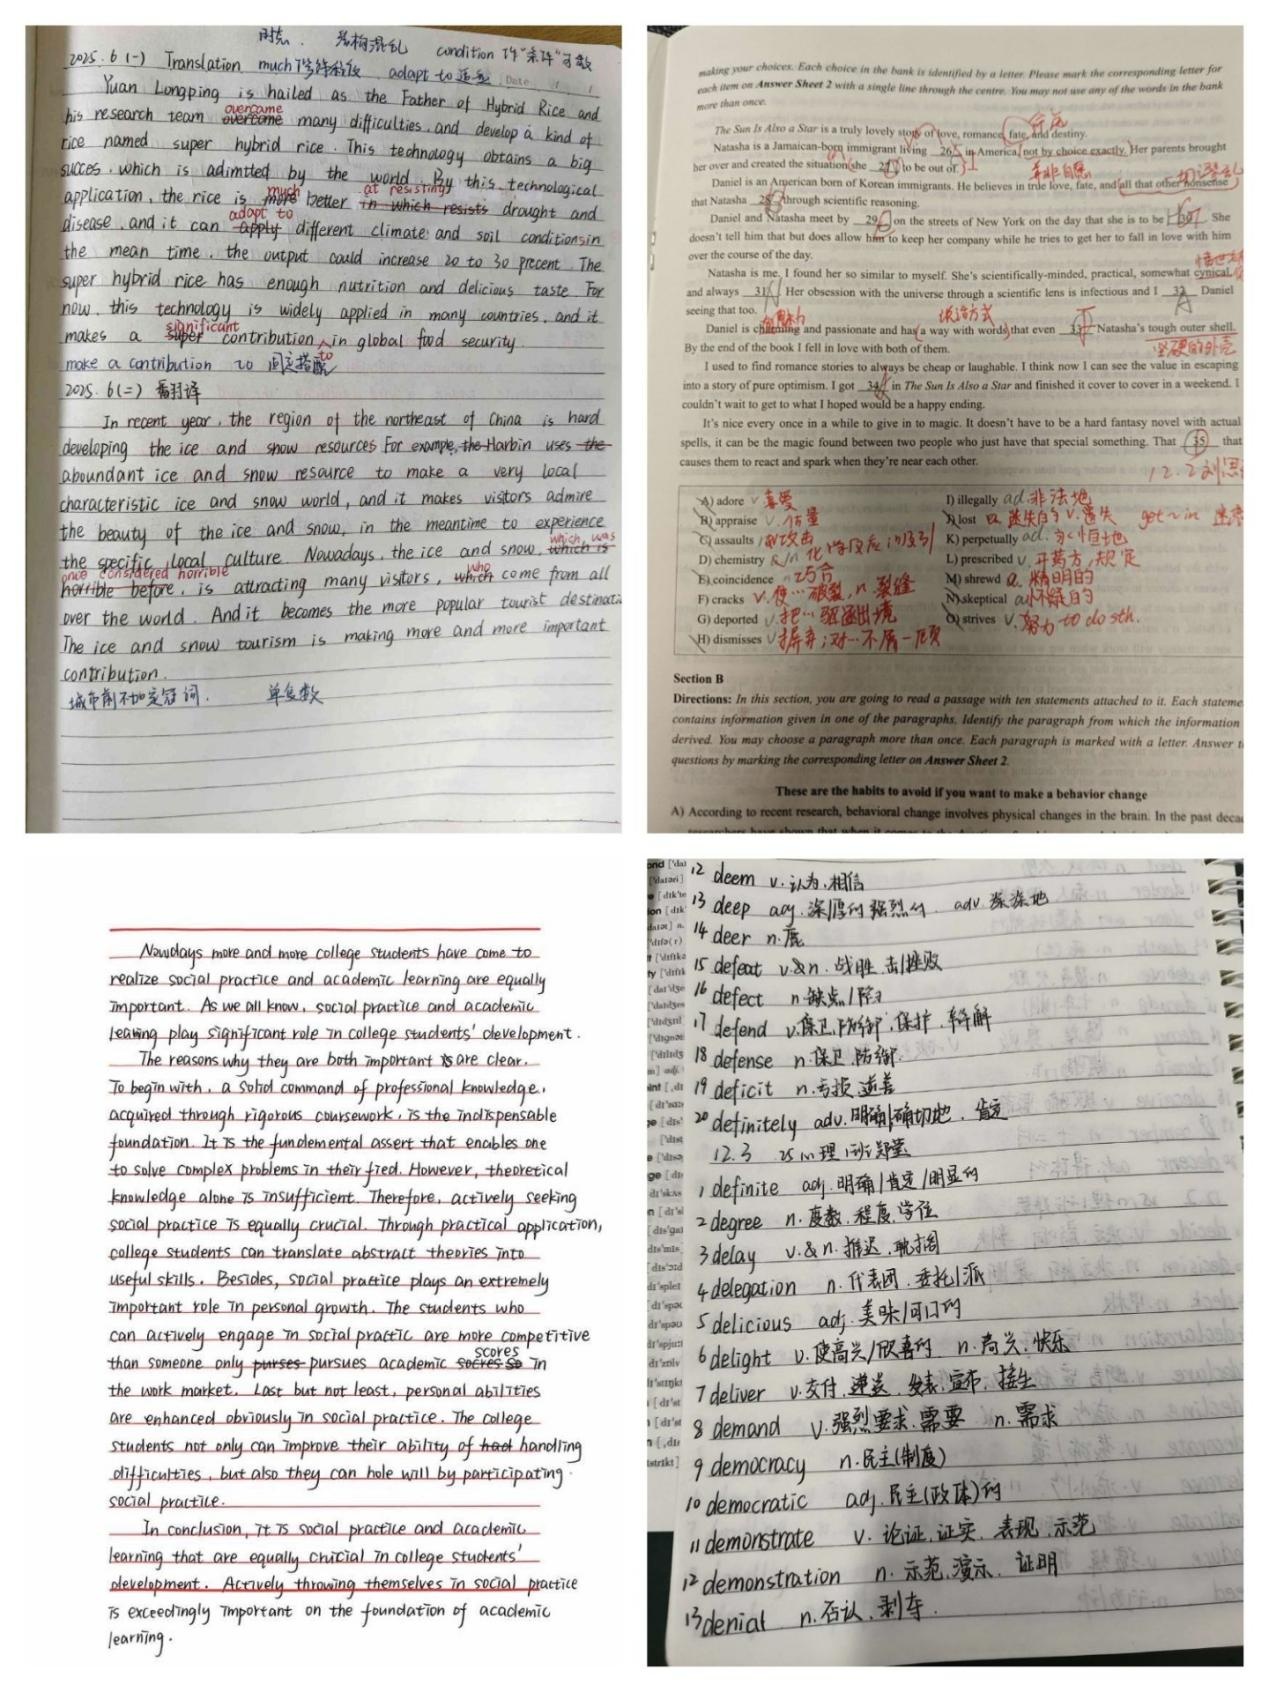 时态、结构混乱 condition 作"条件"可数
2025.6(一) Translation much修饰比较级 adapt to 适应
Date
Yuan Longping is hailed as the Father of Hybrid Rice and
overcame
his research team overcome many difficulties, and develop a kind of
rice named super hybrid rice. This technology obtains a big
succes, which is adimtted by the world. By this technological
much at resisting
application, the rice is more better in which resists drought and
adapt to
disease, and it can apply different climate and soil conditions in
the mean time, the output could increase 20 to 30 precent. The
super hybrid rice has enough nutrition and delicious taste. For
now, this technology is widely applied in many countries, and it
significant
makes a super contribution in global food security.
to
make a contribution to 固定搭配
2025.6(二) 翻译
In recent year, the region of the northeast of China is hard
developing the ice and snow resources For example, the Harbin uses the
aboundant ice and snow resource to make a very local
characteristic ice and snow world, and it makes visitors admire
the beauty of the ice and snow, in the meantime to experience
which, was
the specific local culture. Nowadays, the ice and snow, which is
once considered horrible who
horrible before, is attracting many visitors, which come from all
over the world. And it becomes the more popular tourist destinati
The ice and snow tourism is making more and more important
contribution.
城市前不加定冠词. 单复数
making your choices. Each choice in the bank is identified by a letter. Please mark the corresponding letter for
each item on Answer Sheet 2 with a single line through the centre. You may not use any of the words in the bank
more than once.
命运
The Sun Is Also a Star is a truly lovely story of love, romance, fate, and destiny.
Natasha is a Jamaican-born immigrant living 26 in America, not by choice exactly. Her parents brought
her over and created the situation she 27 to be out of.
并非自愿
Daniel is an American born of Korean immigrants. He believes in true love, fate, and all that other nonsense
that Natasha 28 through scientific reasoning.
Daniel and Natasha meet by 29 on the streets of New York on the day that she is to be 30. She
doesn't tell him that but does allow him to keep her company while he tries to get her to fall in love with him
over the course of the day.
Natasha is me. I found her so similar to myself. She's scientifically-minded, practical, somewhat cynical,
and always 31 N. Her obsession with the universe through a scientific lens is infectious and I 32 Daniel
A
seeing that too.
有魅力 说话方式
Daniel is charming and passionate and has a way with words that even 33 Natasha's tough outer shell.
坚硬的外壳
By the end of the book I fell in love with both of them.
I used to find romance stories to always be cheap or laughable. I think now I can see the value in escaping
into a story of pure optimism. I got 34 in The Sun Is Also a Star and finished it cover to cover in a weekend. I
couldn't wait to get to what I hoped would be a happy ending.
It's nice every once in a while to give in to magic. It doesn't have to be a hard fantasy novel with actual
spells, it can be the magic found between two people who just have that special something. That 35 that
causes them to react and spark when they're near each other.
12.2
A) adore v 喜爱
B) appraise v. 估量
C) assaults n/v 攻击
D) chemistry
E) coincidence n 巧合
F) cracks v. 使…破裂, n. 裂缝
G) deported v. 把…驱逐出境
H) dismisses v 摒弃; 对…不屑一顾
I) illegally ad. 非法地
J) lost a. 迷失的 v. 遗失 get ~ in
K) perpetually ad. 永恒地
L) prescribed v. 开药方, 规定
M) shrewd a. 精明的
N) skeptical a 怀疑的
O) strives v. 努力 to do sth.
Section B
Directions: In this section, you are going to read a passage with ten statements attached to it. Each stateme
contains information given in one of the paragraphs. Identify the paragraph from which the information
derived. You may choose a paragraph more than once. Each paragraph is marked with a letter. Answer t
questions by marking the corresponding letter on Answer Sheet 2.
These are the habits to avoid if you want to make a behavior change
A) According to recent research, behavioral change involves physical changes in the brain. In the past deca
Nowdays more and more college students have come to
realize social practice and academic learning are equally
important. As we all know, social practice and academic
learning play significant role in college students' development.
The reasons why they are both important are clear.
To begin with, a solid command of professional knowledge,
acquired through rigorous coursework, is the indispensable
foundation. It is the fundemental assert that enables one
to solve complex problems in their fied. However, theoretical
knowledge alone is insufficient. Therefore, actively seeking
social practice is equally crucial. Through practical application,
college students can translate abstract theories into
useful skills. Besides, social practice plays an extremely
important role in personal growth. The students who
can actively engage in social practic are more competitive
scores
than someone only purses pursues academic socres so in
the work market. Last but not least, personal abilities
are enhanced obviously in social practice. The college
students not only can improve their ability of had handling
difficulties, but also they can hole will by participating
social practice.
In conclusion, it is social practice and academic
learning that are equally crucial in college students'
development. Actively throwing themselves in social practice
is exceedingly important on the foundation of academic
learning.
12 deem v. 认为, 相信
13 deep adj. 深厚的 强烈的 adv. 深深地
14 deer n. 鹿
15 defeat v.&n. 战胜, 击/挫败
16 defect n. 缺点/陷
17 defend v. 保卫, 防御, 保护, 辩解
18 defense n. 保卫, 防御
19 deficit n. 亏损, 逆差
20 definitely adv. 明确/确切地, 肯定
12.3 25心理1班
1 definite adj. 明确/肯定/明显的
2 degree n. 度数, 程度, 学位
3 delay v.&n. 推迟, 耽搁
4 delegation n. 代表团, 委托/派
5 delicious adj. 美味/可口的
6 delight v. 使高兴/欣喜的 n. 高兴, 快乐
7 deliver v. 交付, 递送, 发表, 宣布, 接生
8 demand v. 强烈要求, 需要 n. 需求
9 democracy n. 民主(制度)
10 democratic adj. 民主(政体)的
11 demonstrate v. 论证, 证实, 表现, 示范
12 demonstration n. 示范, 演示, 证明
13 denial n. 否认, 剥夺.